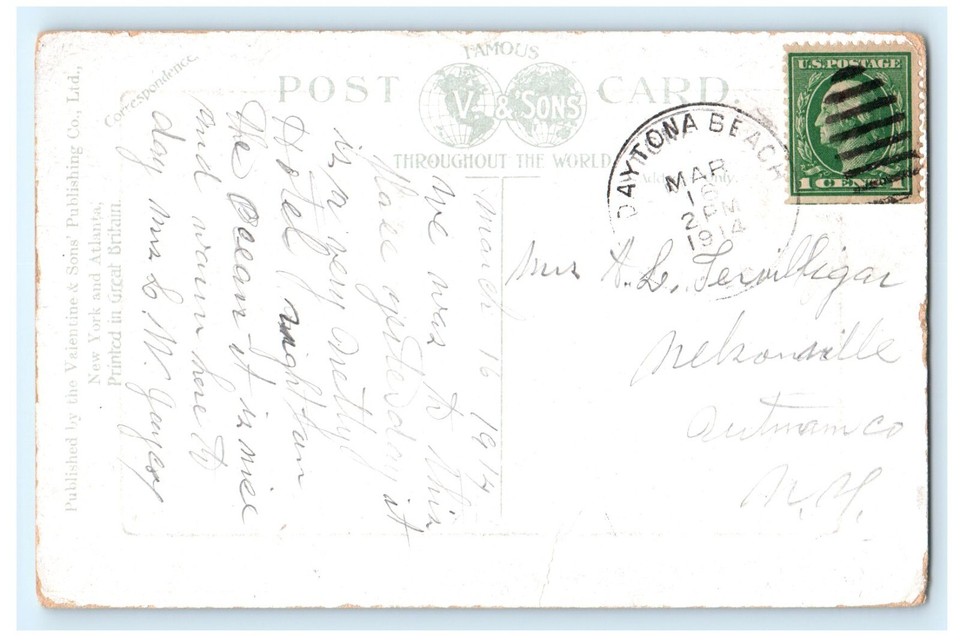 FAMOUS
POST CARD
V. & SONS
THROUGHOUT THE WORLD
Correspondence.
DAYTONA BEACH
MAR
16
2 PM
1914
U.S. POSTAGE
1 CENT 1
March 16 1914
We was to this
Place yesterday it
is very Pretty
Hotel right
the Ocean it is nice
and warm here to
day Mrs L M.
Mrs A. L. Terwilligar
Nelsonville
Putnam co
N. Y.
Published by the Valentine & Sons' Publishing Co., Ltd.,
New York and Atlanta.
Printed in Great Britain.